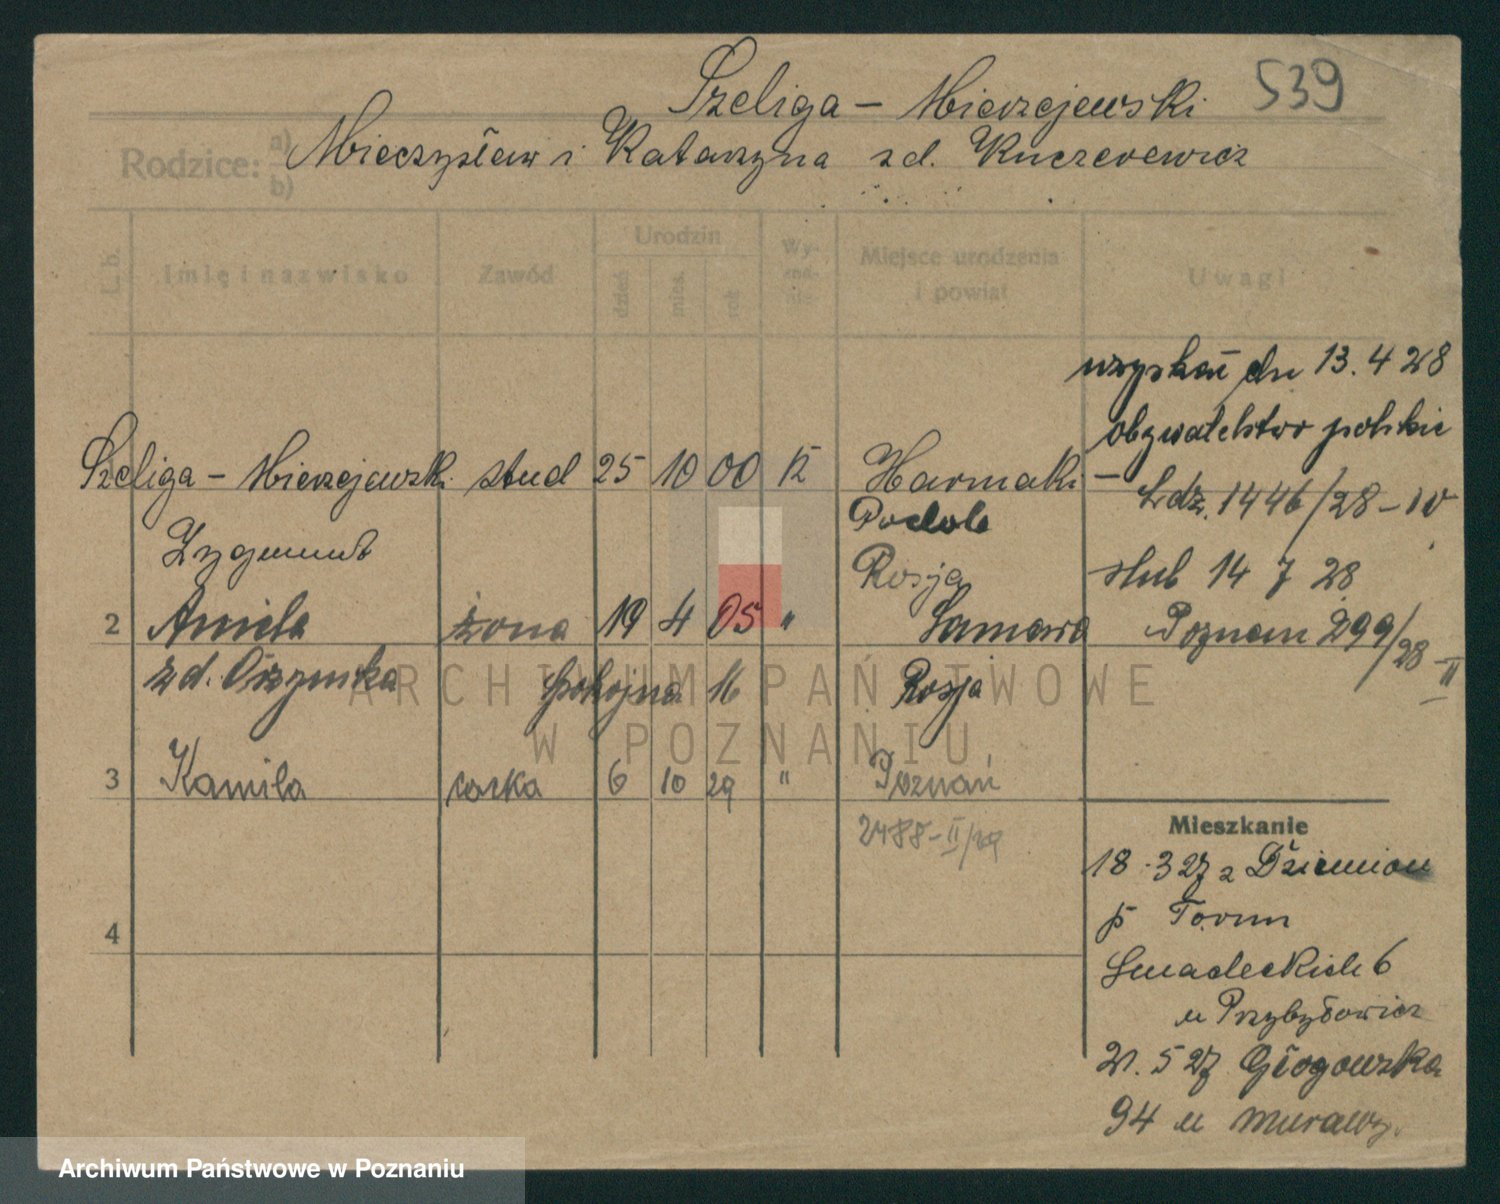 539
Szeliga - Mierzejewski
Rodzice: a) b) Mieczysław i Katarzyna zd. Kuczerewicz
L. b. Imię i nazwisko Zawód Urodzin dzień mies. rok Wyznanie Miejsce urodzenia i powiat Uwagi
uzyskał dn 13. 4 28
obywatelstwo polskie
Szeliga - Mierzejewski stud 25 10 00 K Harmaki -
Ldz. 1446/28 - IV
Zygmunt Podole
Rosja ślub 14 7 28
2 Aniela żona 19 4 05 " Poznań 299/28 - II
zd. 16 Rosja
ARCHIWUM PAŃSTWOWE
W POZNANIU
3 Kamila córka 6 10 29 " Poznań
2488 - II/29
Mieszkanie
18 . 3 27 z Dziemion
p Torun
4
Sniadeckich 6
u Przybyłowicz
21. 5 27 Głogowska
94 u Murawy.
Archiwum Państwowe w Poznaniu